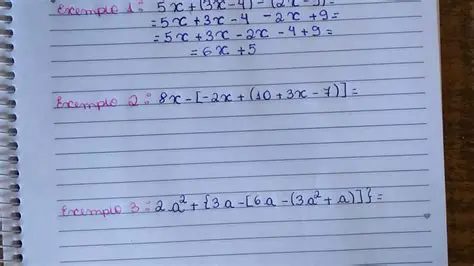 Exemplo 1: 5x+(3x-4)-(2x-9)=
=5x+3x-4 -2x+9=
=5x+3x-2x-4+9=
=6x+5
Exemplo 2: 8x-[-2x+(10+3x-7)]=
Exemplo 3: 2a²+{3a-[6a-(3a²+a)]}=